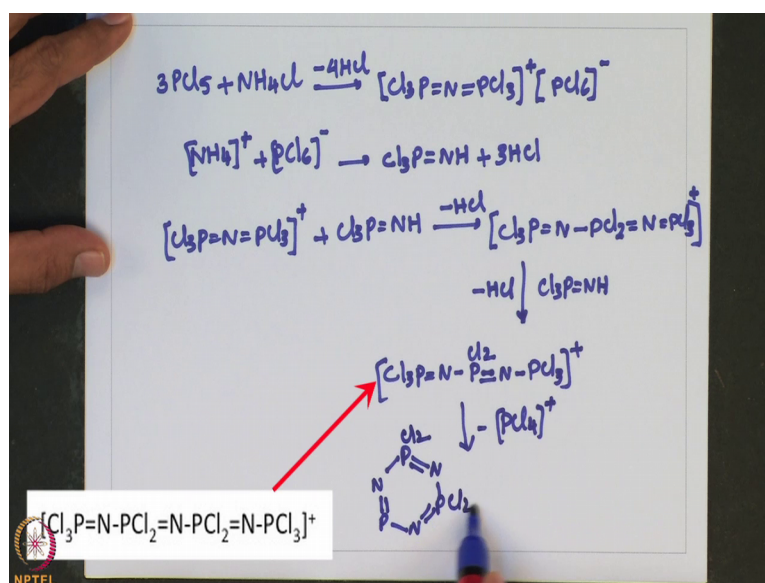 3PCl5 + NH4Cl -4HCl → [Cl3P=N=PCl3]+ [PCl6]-
[NH4]+ + [PCl6]- → Cl3P=NH + 3HCl
[Cl3P=N=PCl3]+ + Cl3P=NH -HCl → [Cl3P=N-PCl2=N=PCl3]+
-HCl ↓ Cl3P=NH
[Cl3P=N-PCl2=N-PCl3]+
↓ -[PCl4]+
Cl2
P N
N PCl2
P N
[Cl3P=N-PCl2=N-PCl2=N-PCl3]+
NPTEL